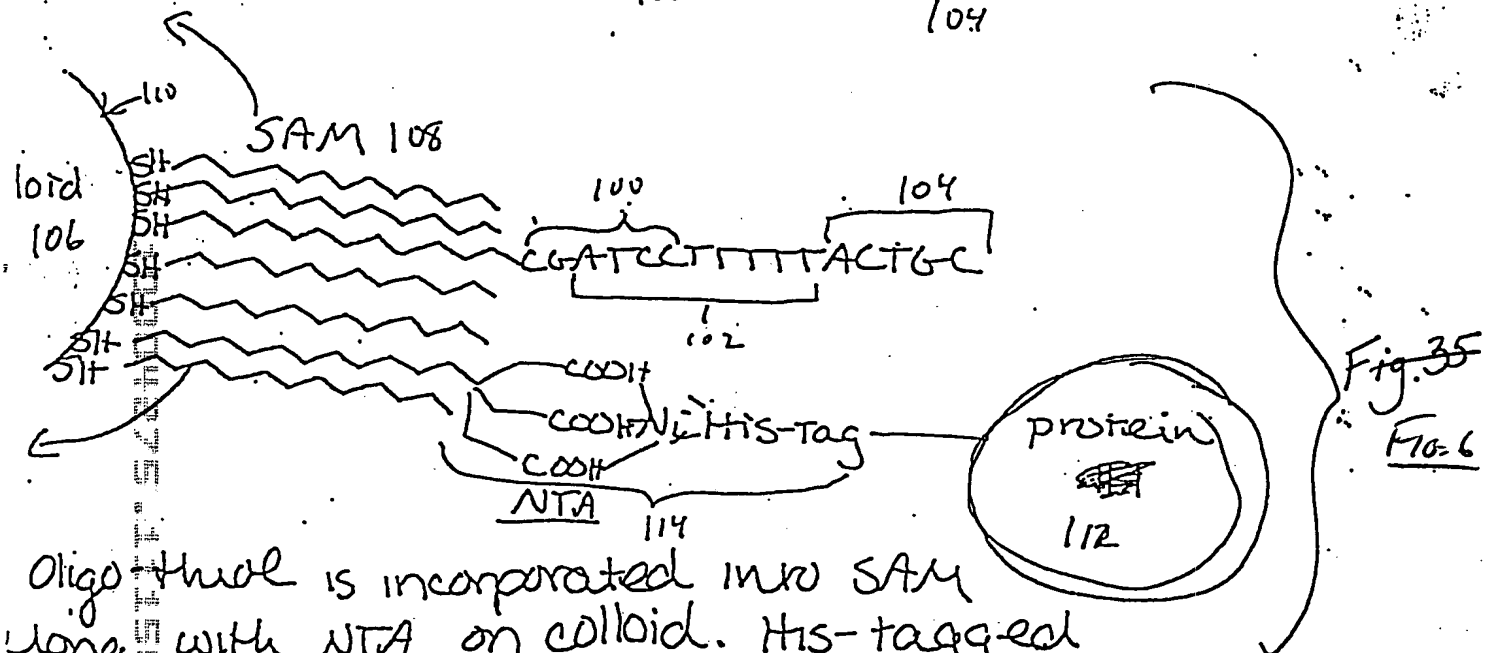 104
110
SAM 108
loid
106
SH
SH
SH
SH
SH
SH
SH
100
104
CGATCCTTTTTACTGC
102
COOH
COOH Ni His-Tag
COOH
NTA
114
protein
112
Fig. 35
FIG. 6
Oligo thiol is incorporated into SAM
along with NTA on colloid. His-tagged